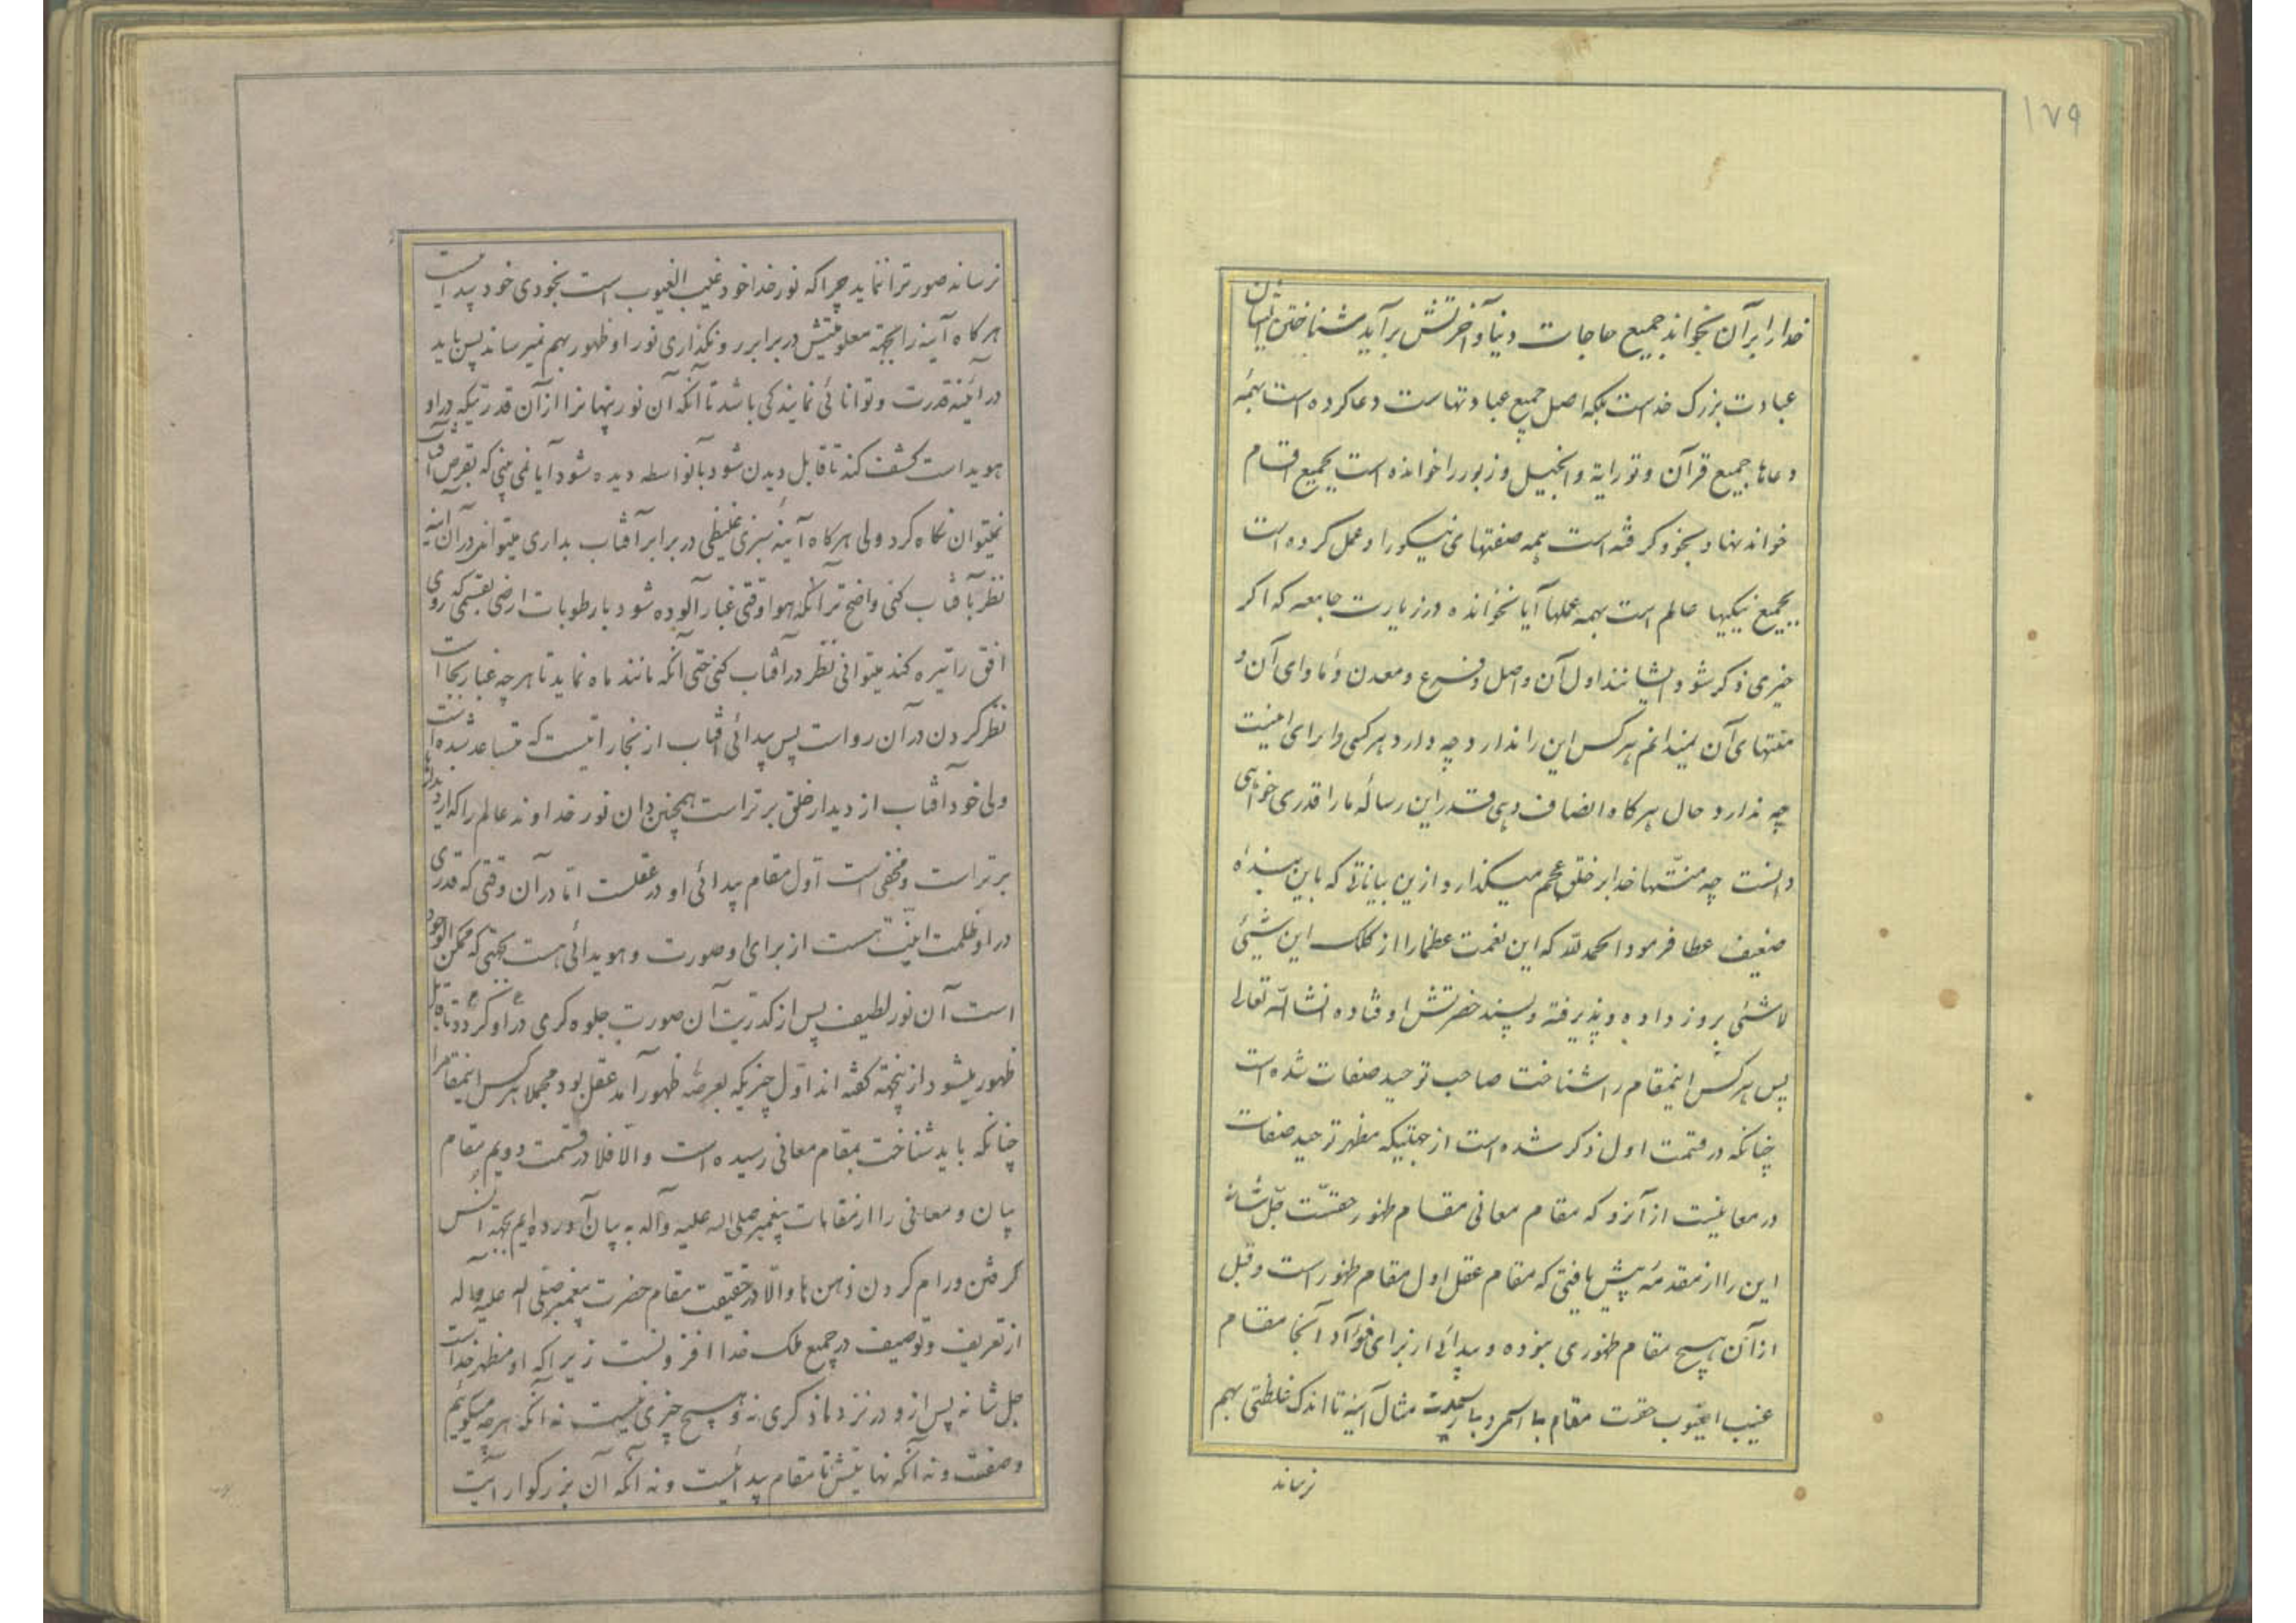 ۱۷۹
خدا را بر آن بخواند جمیع حاجات دنیا و آخرتش بر آید شناختن ایشان
عبادت بزرک خداست بلکه اصل جمیع عبادتهاست دعا کرده است بهمه
دعاها جمیع قرآن و توریة و انجیل و زبور را خوانده است بجمیع اقسام
خواندنها و بخود کرفته است همه صفتهای نیکو را و عمل کرده است
بجمیع نیکیها عالم است بهمه عملها آیا نخوانده در زیارت جامعه که اکر
خیری ذکر شود ایشانند اول آن و اصل و فرع و معدن و ماوای آن و
منتهای آن نمیدانم هر کس این را ندارد چه دارد هر کسی دارای اینست
چه ندارد حال هر کاه انصاف دهی قدر این رساله ما را قدری خواهی
دانست چه منتها خدا بر خلق عجم میکذارد از این بیاناتی که باین بنده
ضعیف عطا فرمود الحمد لله که این نعمت عظما را از کلک این شیئی
لاشئی بروز داده و پذیرفته و پسند حضرتش اوفتاده انشاالله تعالی
پس هر کس اینمقام را شناخت صاحب توحید صفات شده است
چنانکه در قسمت اول ذکر شده است از جهتیکه مظهر توحید صفات
در معانیست از آنرو که مقام معانی مقام ظهور حقست جل شانه
این را از مقدمه پیش یافتی که مقام عقل اول مقام ظهور است و قبل
از آن هیچ مقام ظهوری نبوده و پیدائی از برای فوآد آنجا مقام
غیب الغیوب حقرت مقام مثال آینه تا اندک غلظتی بهم
نرساند
نرساند صور ترا ننماید چرا که نور خدا خود غیب الغیوب است بخودی خود پیدا نیست
هر کاه آینه را بجهة معلومیتش در برابر رو نکذاری نور او ظهور بهم نمیرساند پس باید
در آئینه قدرت و توانائی نمایندکی باشد تا آنکه آن نور پنهانرا از آن قدرتیکه در او
هویداست کشف کند تا قابل دیدن شود بانواسطه دیده شود آیا نمی بینی که بقرص آفتاب
نمیتوان نکاه کرد ولی هر کاه آینه سبزی غلیظی در برابر آفتاب بداری میتوانی در آن آینه
نظر بآفتاب کنی واضح تر آنکه هوا وقتی غبار آلوده شود با رطوبات ارضی بقسمی که روی
افق را تیره کند میتوانی نظر در آفتاب کنی حتی آنکه مانند ماه نماید تا هر چه غبار بجا است
نظر کردن در آن رواست پس پیدائی آفتاب از بخاراتیست که متساعد شده است
ولی خود آفتاب از دیدار خلق برتر است همچنین دان نور خداوند عالم را که از دیدار
برتر است و مخفی است اول مقام پیدائی او در عقلست اما در آن وقتی که قدری
در او ظلمت اینیت هست از برای او صورت و هویدائی هست بجهتی که ممکن الوجود
است آن نور لطیف پس از کدریت آن صورت جلوه کری در او کردد تا قابل
ظهور میشود از اینجهة کفته اند اول چیزیکه بعرصه ظهور آمد عقل بود مجملا هر کس اینمقام را
چنانکه باید شناخت بمقام معانی رسیده است والا فلا در قسمت دویم مقام
بیان و معانی را از مقامات پیغمبر صلی اله علیه وآله به بیان آورده ایم بجهة انس
کرفتن و رام کردن ذهن ها والا در حقیقت مقام حضرت پیغمبر صلی اله علیه وآله
از تعریف و توصیف در جمیع ملک خدا افزونست زیرا که او مظهر خداست
جل شانه پس از او در نزد ما ذکری نه و هیچ چیزی نیست نه آنکه هر چه میکوییم
وصفست و نه آنکه نهایتش تا مقام پیدائیست و نه آنکه آن بزرکوار اینست